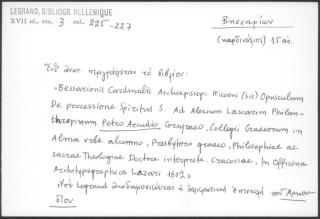 LEGRAND, BIBLIOGR. HELLENIQUE
XVII αι, τόμ. 3 σελ. 225-227
Βησσαρίων
(καρδινάλιος) 15 αι.
Ἐνθ' ἀνωτ. περιγράφεται τὸ βιβλίον:
«Bessarionis Cardinalis Archiepiscopi Niconi (sic) Opusculum
De processione Spiritus S. Ad Alexium Lascarim Philan-
thropinum Petro Arcudio Corcyraeo, Collegii Graecorum in
Alma Vrbe alumno, Presbytero graeco, Philosophiae ac
sacrae Theologiae Doctore interprete. Cracoviae, In Officina
Architypographica Lazari 1602»
Ὑπὸ Legrand ἀναδημοσιεύεται ἡ ἀφιερωτικὴ ἐπιστολὴ τοῦ Ἀρκου-
δίου